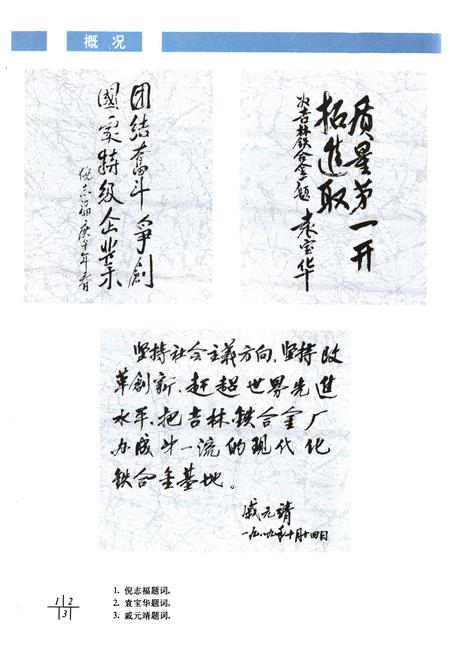 概况
团结奋斗争创
国家特级企业
倪志福庚午年春
质量第一开
拓进取
为吉林铁合金题
袁宝华
坚持社会主義方向,坚持改
革创新、赶超世界先進
水平,把吉林铁合金厂
办成为一流的现代化
铁合金基地。
戚元靖
一九八九年十月十四日
1 2
3
1. 倪志福题词.
2. 袁宝华题词.
3. 戚元靖题词.